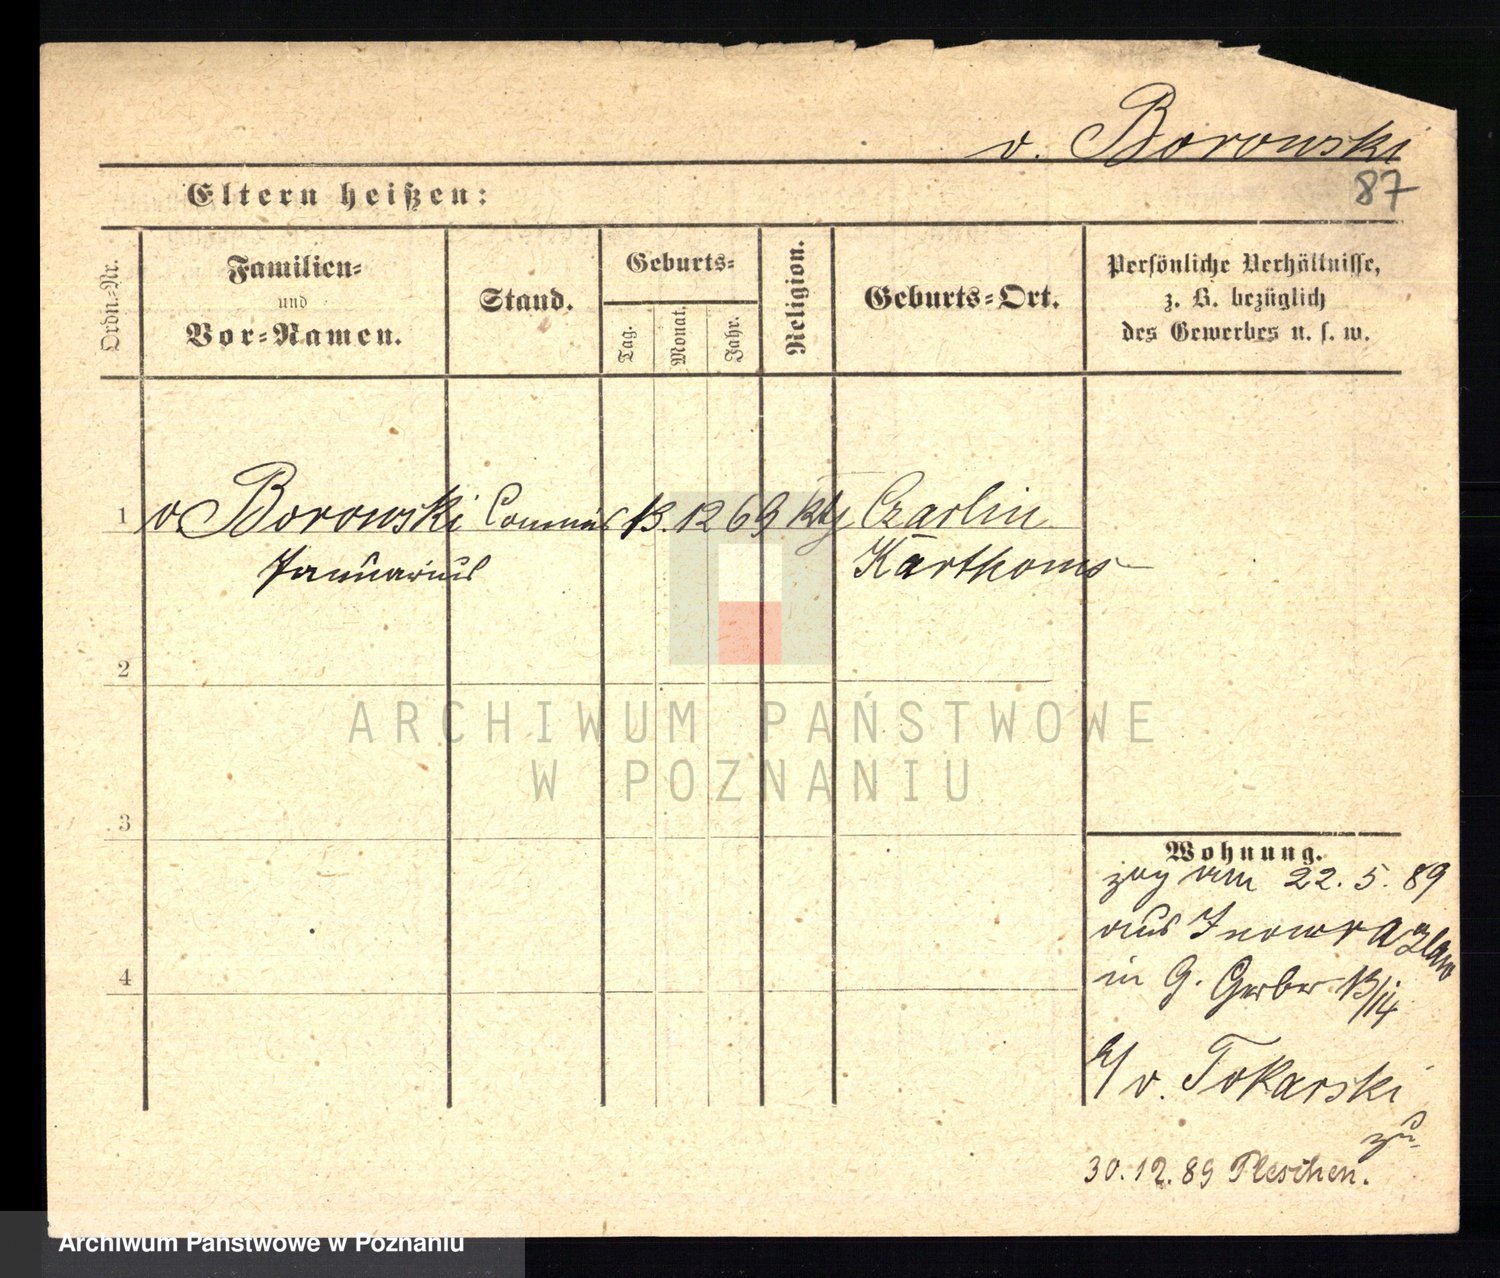 v. Borowski
87
Eltern heißen:
Ordn.-Nr.
Familien-
und
Vor-Namen.
Stand.
Geburts-
Tag.
Monat.
Jahr.
Religion.
Geburts-Ort.
Persönliche Verhältnisse,
z. B. bezüglich
des Gewerbes u. s. w.
1 v Borowski Commis 13. 12 69 kth Czarlin
Januarius Karthaus
2
3
4
Wohnung.
zog am 22. 5. 89
aus Inowrazlaw
in G. Gerber 13/14
b/ v. Tokarski
30.12.89 Pleschen.
ARCHIWUM PAŃSTWOWE
W POZNANIU
Archiwum Państwowe w Poznaniu